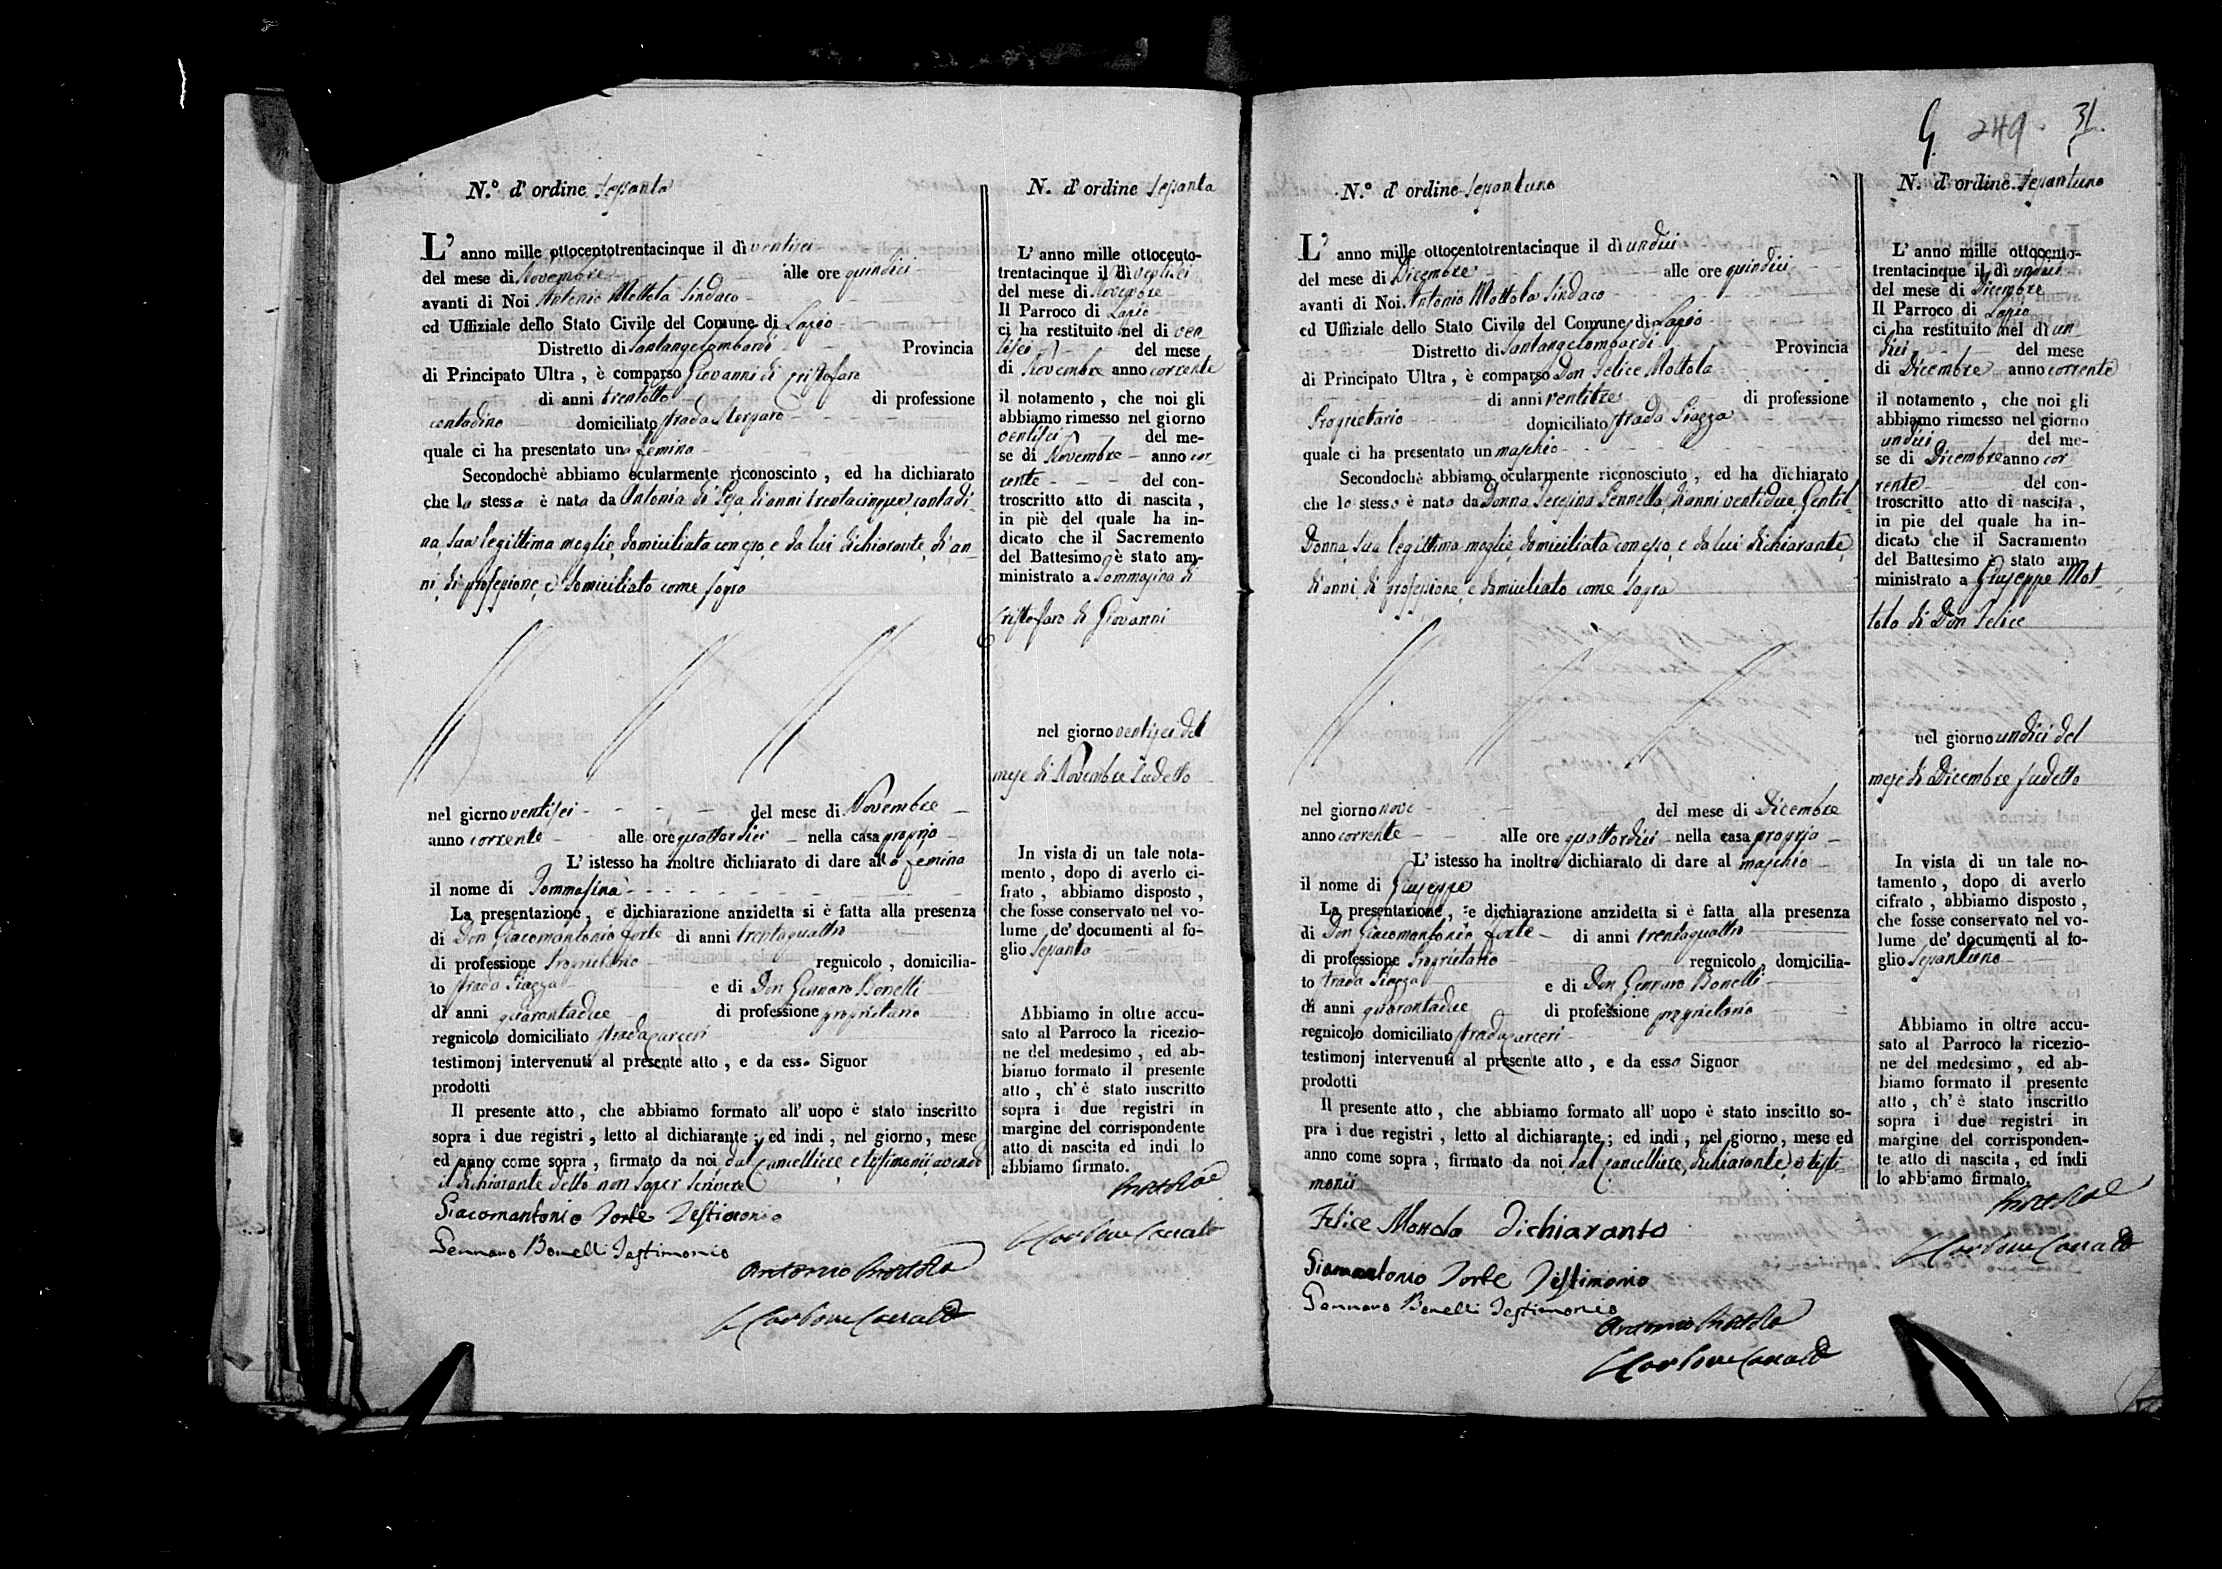 N.º d' ordine Sessanta
L' anno mille ottocentotrentacinque il dì ventisei
del mese di Novembre alle ore quindici
avanti di Noi Antonio Mottola Sindaco
ed Uffiziale dello Stato Civile del Comune di Lapio
Distretto di Santangelombardi Provincia
di Principato Ultra, è comparso Giovanni di Cristofaro
di anni trentotto di professione
contadino domiciliato strada
quale ci ha presentato una femina
Secondochè abbiamo ocularmente riconosciuto, ed ha dichiarato
che la stessa è nata da Antonia di di anni trentacinque, contadi-
na, sua legittima moglie, domiciliata con esso, e da lui dichiarante, di an-
ni, di professione, e domiciliato come sopra
nel giorno ventisei del mese di Novembre
anno corrente alle ore quattordici nella casa propria
L' istesso ha inoltre dichiarato di dare alla femina
il nome di Tommasina
La presentazione, e dichiarazione anzidetta si è fatta alla presenza
di Don Giacomantonio Forte di anni trentaquattro
di professione Proprietario regnicolo, domicilia-
to strada Piazza e di Don Gennaro Bonelli
di anni quarantadue di professione proprietario
regnicolo domiciliato strada Carceri
testimonj intervenuti al presente atto, e da esso Signor
prodotti
Il presente atto, che abbiamo formato all' uopo è stato inscritto
sopra i due registri, letto al dichiarante; ed indi, nel giorno, mese
ed anno come sopra, firmato da noi, dal Cancelliere, e testimonii avendo
il dichiarante detto non saper scrivere
Giacomantonio Forte Testimonio
Gennaro Bonelli Testimonio
Antonio Mottola
N. d' ordine Sessanta
L' anno mille ottocento-
trentacinque il dì ventisei
del mese di Novembre
Il Parroco di Lapio
ci ha restituito nel dì ven-
tisei del mese
di Novembre anno corrente
il notamento, che noi gli
abbiamo rimesso nel giorno
ventisei del me-
se di Novembre anno cor-
rente del con-
troscritto atto di nascita,
in piè del quale ha in-
dicato che il Sacremento
del Battesimo è stato am-
ministrato a Tommasina di
Cristofaro di Giovanni
nel giorno ventisei del
mese di Novembre sudetto
In vista di un tale nota-
mento, dopo di averlo ci-
frato, abbiamo disposto,
che fosse conservato nel vo-
lume de' documenti al fo-
glio Sessanta
Abbiamo in oltre accu-
sato al Parroco la ricezio-
ne del medesimo, ed ab-
biamo formato il presente
atto, ch' è stato inscritto
sopra i due registri in
margine del corrispondente
atto di nascita ed indi lo
abbiamo firmato.
Mottola
249. 31.
N.º d' ordine Sessantuno
L' anno mille ottocentotrentacinque il dì undici
del mese di Dicembre alle ore quindici
avanti di Noi Antonio Mottola Sindaco
ed Uffiziale dello Stato Civile del Comune di Lapio
Distretto di Santangelombardi Provincia
di Principato Ultra, è comparso Don Felice Mottola
di anni ventitre di professione
Proprietario domiciliato strada Piazza
quale ci ha presentato un maschio
Secondochè abbiamo ocularmente riconosciuto, ed ha dichiarato
che lo stesso è nato da Donna Serafina Pennella, di anni ventidue Gentil
Donna, sua legittima moglie, domiciliata con esso, e da lui dichiarante,
di anni, di professione, e domiciliato come sopra
nel giorno nove del mese di Dicembre
anno corrente alle ore quattordici nella casa propria
L' istesso ha inoltre dichiarato di dare al maschio
il nome di Giuseppe
La presentazione, e dichiarazione anzidetta si è fatta alla presenza
di Don Giacomantonio Forte di anni trentaquattro
di professione Proprietario regnicolo, domicilia-
to strada Piazza e di Don Gennaro Bonelli
di anni quarantadue di professione proprietario
regnicolo domiciliato strada Carceri
testimonj intervenuti al presente atto, e da esso Signor
prodotti
Il presente atto, che abbiamo formato all' uopo è stato inscitto so-
pra i due registri, letto al dichiarante; ed indi, nel giorno, mese ed
anno come sopra, firmato da noi, dal Cancelliere, dichiarante, e testi-
monii
Felice Mottola Dichiarante
Giamantonio Forte Testimonio
Gennaro Bonelli Testimonio
Antonio Mottola
N. d' ordine Sessantuno
L' anno mille ottocento-
trentacinque il dì undici
del mese di Dicembre
Il Parroco di Lapio
ci ha restituito nel dì un
dici del mese
di Dicembre anno corrente
il notamento, che noi gli
abbiamo rimesso nel giorno
undici del me-
se di Dicembre anno cor-
rente del con-
troscritto atto di nascita,
in pie del quale ha in-
dicato che il Sacramento
del Battesimo è stato am-
ministrato a Giuseppe Mot
tola di Don Felice
nel giorno undici del
mese di Dicembre sudetto
In vista di un tale no-
tamento, dopo di averlo
cifrato, abbiamo disposto,
che fosse conservato nel vo-
lume de' documenti al fo-
glio Sessantuno
Abbiamo in oltre accu-
sato al Parroco la ricezio-
ne del medesimo, ed ab-
biamo formato il presente
atto, ch' è stato inscritto
sopra i due registri in
margine del corrisponden-
te atto di nascita, ed indi
lo abbiamo firmato.
Mottola